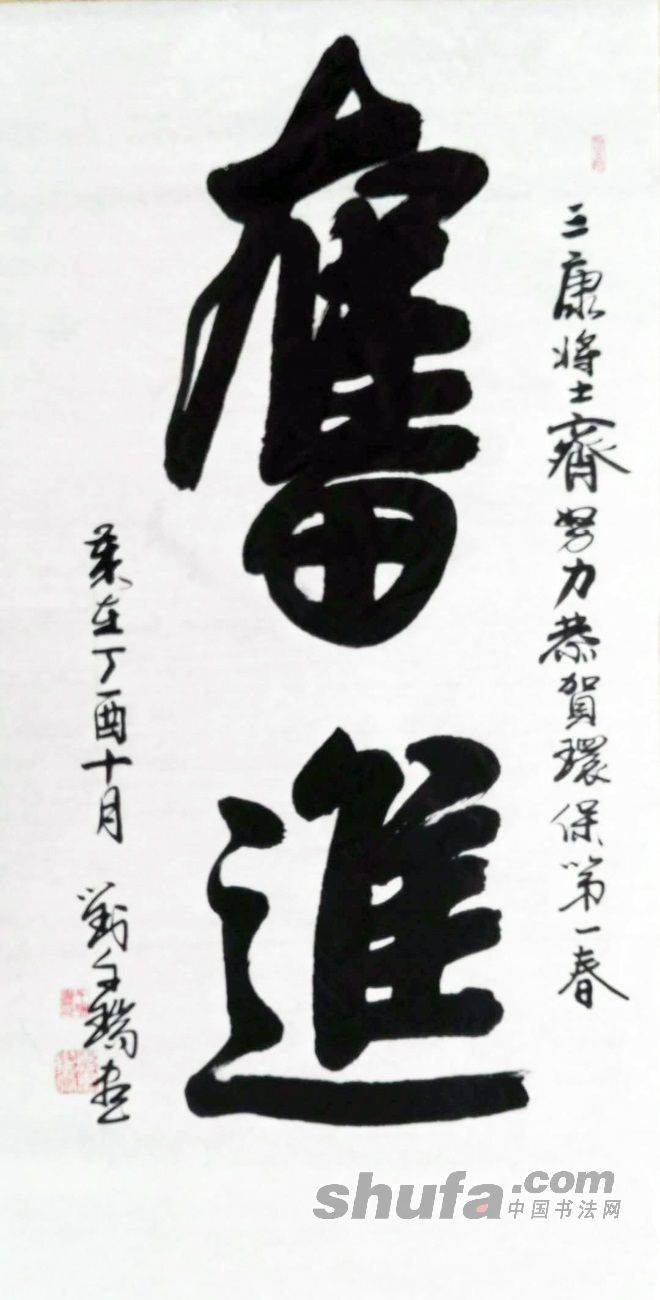 三康将士齊努力恭賀環保第一春
奮進
歲在丁酉十月 劉玉瑞書
shufa.com
中国书法网